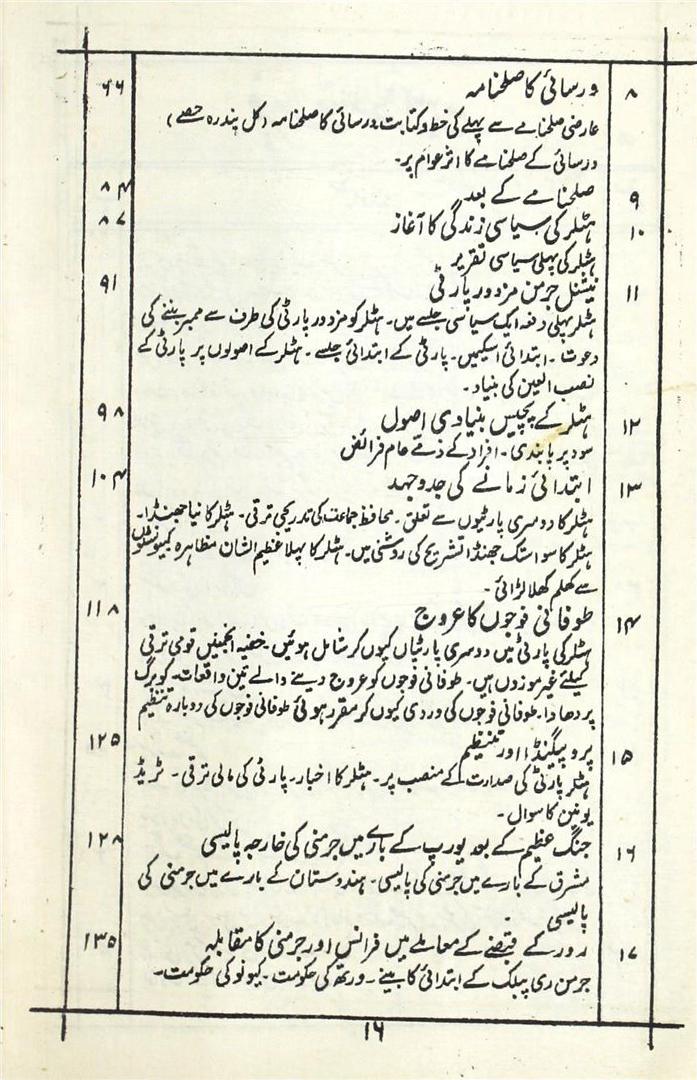 ۸ ورسائی کا صلحنامہ ۶۶
عارضی صلحنامے سے پہلے کی خط و کتابت ورسائی کا صلحنامہ (کل پندرہ حصے)
ورسائی کے صلحنامے کا اثر عوام پر۔
۹ صلحنامے کے بعد ۸۴
۱۰ ہٹلر کی سیاسی زندگی کا آغاز ۸۷
ہٹلر کی پہلی سیاسی تقریر
۱۱ نیشنل جرمن مزدور پارٹی ۹۱
ہٹلر پہلی دفعہ ایک سیاسی جلسے میں۔ ہٹلر کو مزدور پارٹی کی طرف سے ممبر بننے کی
دعوت۔ ابتدائی اسکیمیں۔ پارٹی کے ابتدائی جلسے۔ ہٹلر کے اصولوں پر پارٹی کے
نصب العین کی بنیاد۔
۱۲ ہٹلر کے پچیس بنیادی اصول ۹۸
سود پر پابندی۔ افراد کے ذمے عام فرائض
۱۳ ابتدائی زمانے کی جدوجہد ۱۰۴
ہٹلر کا دوسری پارٹیوں سے تعلق۔ محافظ جماعت کی تدریجی ترقی۔ ہٹلر کا نیا جھنڈا۔
ہٹلر کا سواستک جھنڈا تشریح کی روشنی میں۔ ہٹلر کا پہلا عظیم الشان مظاہرہ کمیونسٹوں
سے کھلم کھلا لڑائی۔
۱۴ طوفانی فوجوں کا عروج ۱۱۸
ہٹلر کی پارٹی میں دوسری پارٹیاں کیوں کر شامل ہوئیں۔ خفیہ انجمنیں قومی ترقی
کیلئے غیر موزوں ہیں۔ طوفانی فوجوں کو عروج دینے والے تین واقعات۔ کوبرگ
پر دھاوا۔ طوفانی فوجوں کی وردی کیوں کر مقرر ہوئی طوفانی فوجوں کی دوبارہ تنظیم
۱۵ پروپیگنڈا اور تنظیم ۱۲۵
ہٹلر پارٹی کی صدارت کے منصب پر۔ ہٹلر کا اخبار۔ پارٹی کی مالی ترقی۔ ٹریڈ
یونین کا سوال۔
۱۶ جنگ عظیم کے بعد یورپ کے بارے میں جرمنی کی خارجہ پالیسی ۱۲۸
مشرق کے بارے میں جرمنی کی پالیسی۔ ہندوستان کے بارے میں جرمنی کی
پالیسی۔
۱۷ رور کے قبضے کے معاملے میں فرانس اور جرمنی کا مقابلہ ۱۳۵
جرمن ری پبلک کے ابتدائی کابینے۔ ورتھ کی حکومت۔ کیونو کی حکومت۔
۱۶